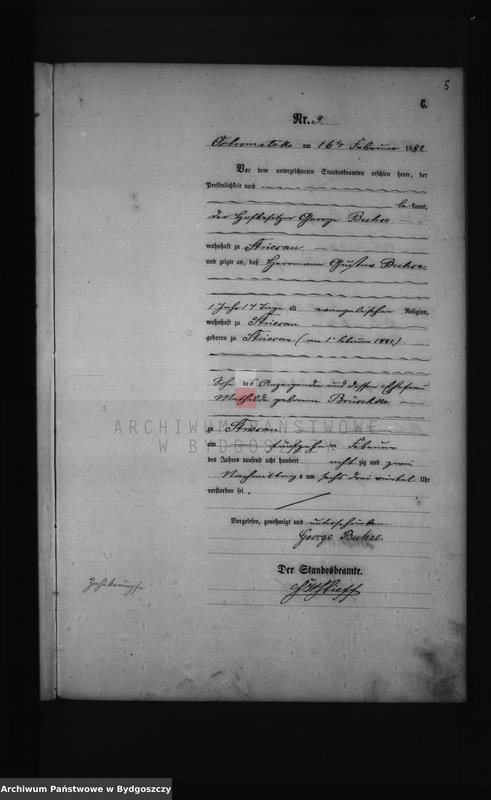 5
C.
Nr. 9.
Ostrometzko am 16ten Februar 1882
Vor dem unterzeichneten Standesbeamten erschien heute, der
Persönlichkeit nach
be kannt,
der Hofbesitzer George Buhse
wohnhaft zu
und zeigte an, daß Herrmann Gustav Buhse
1 Jahr 14 Tage alt evangelischer Religion,
wohnhaft zu
geboren zu (am 1. Februar 1881)
Sohn des Anzeigenden und dessen Ehefrau
Mathilde geborene
zu
am fünfzehnten Februar
des Jahres tausend acht hundert acht zig und zwei
Nachmittags um sechs drei viertel Uhr
verstorben sei.
Vorgelesen, genehmigt und unterschrieben
George Buhse.
Der Standesbeamte.
Zahnkrämpfe
ARCHIWUM PAŃSTWOWE
W BYDGOSZCZY
Archiwum Państwowe w Bydgoszczy